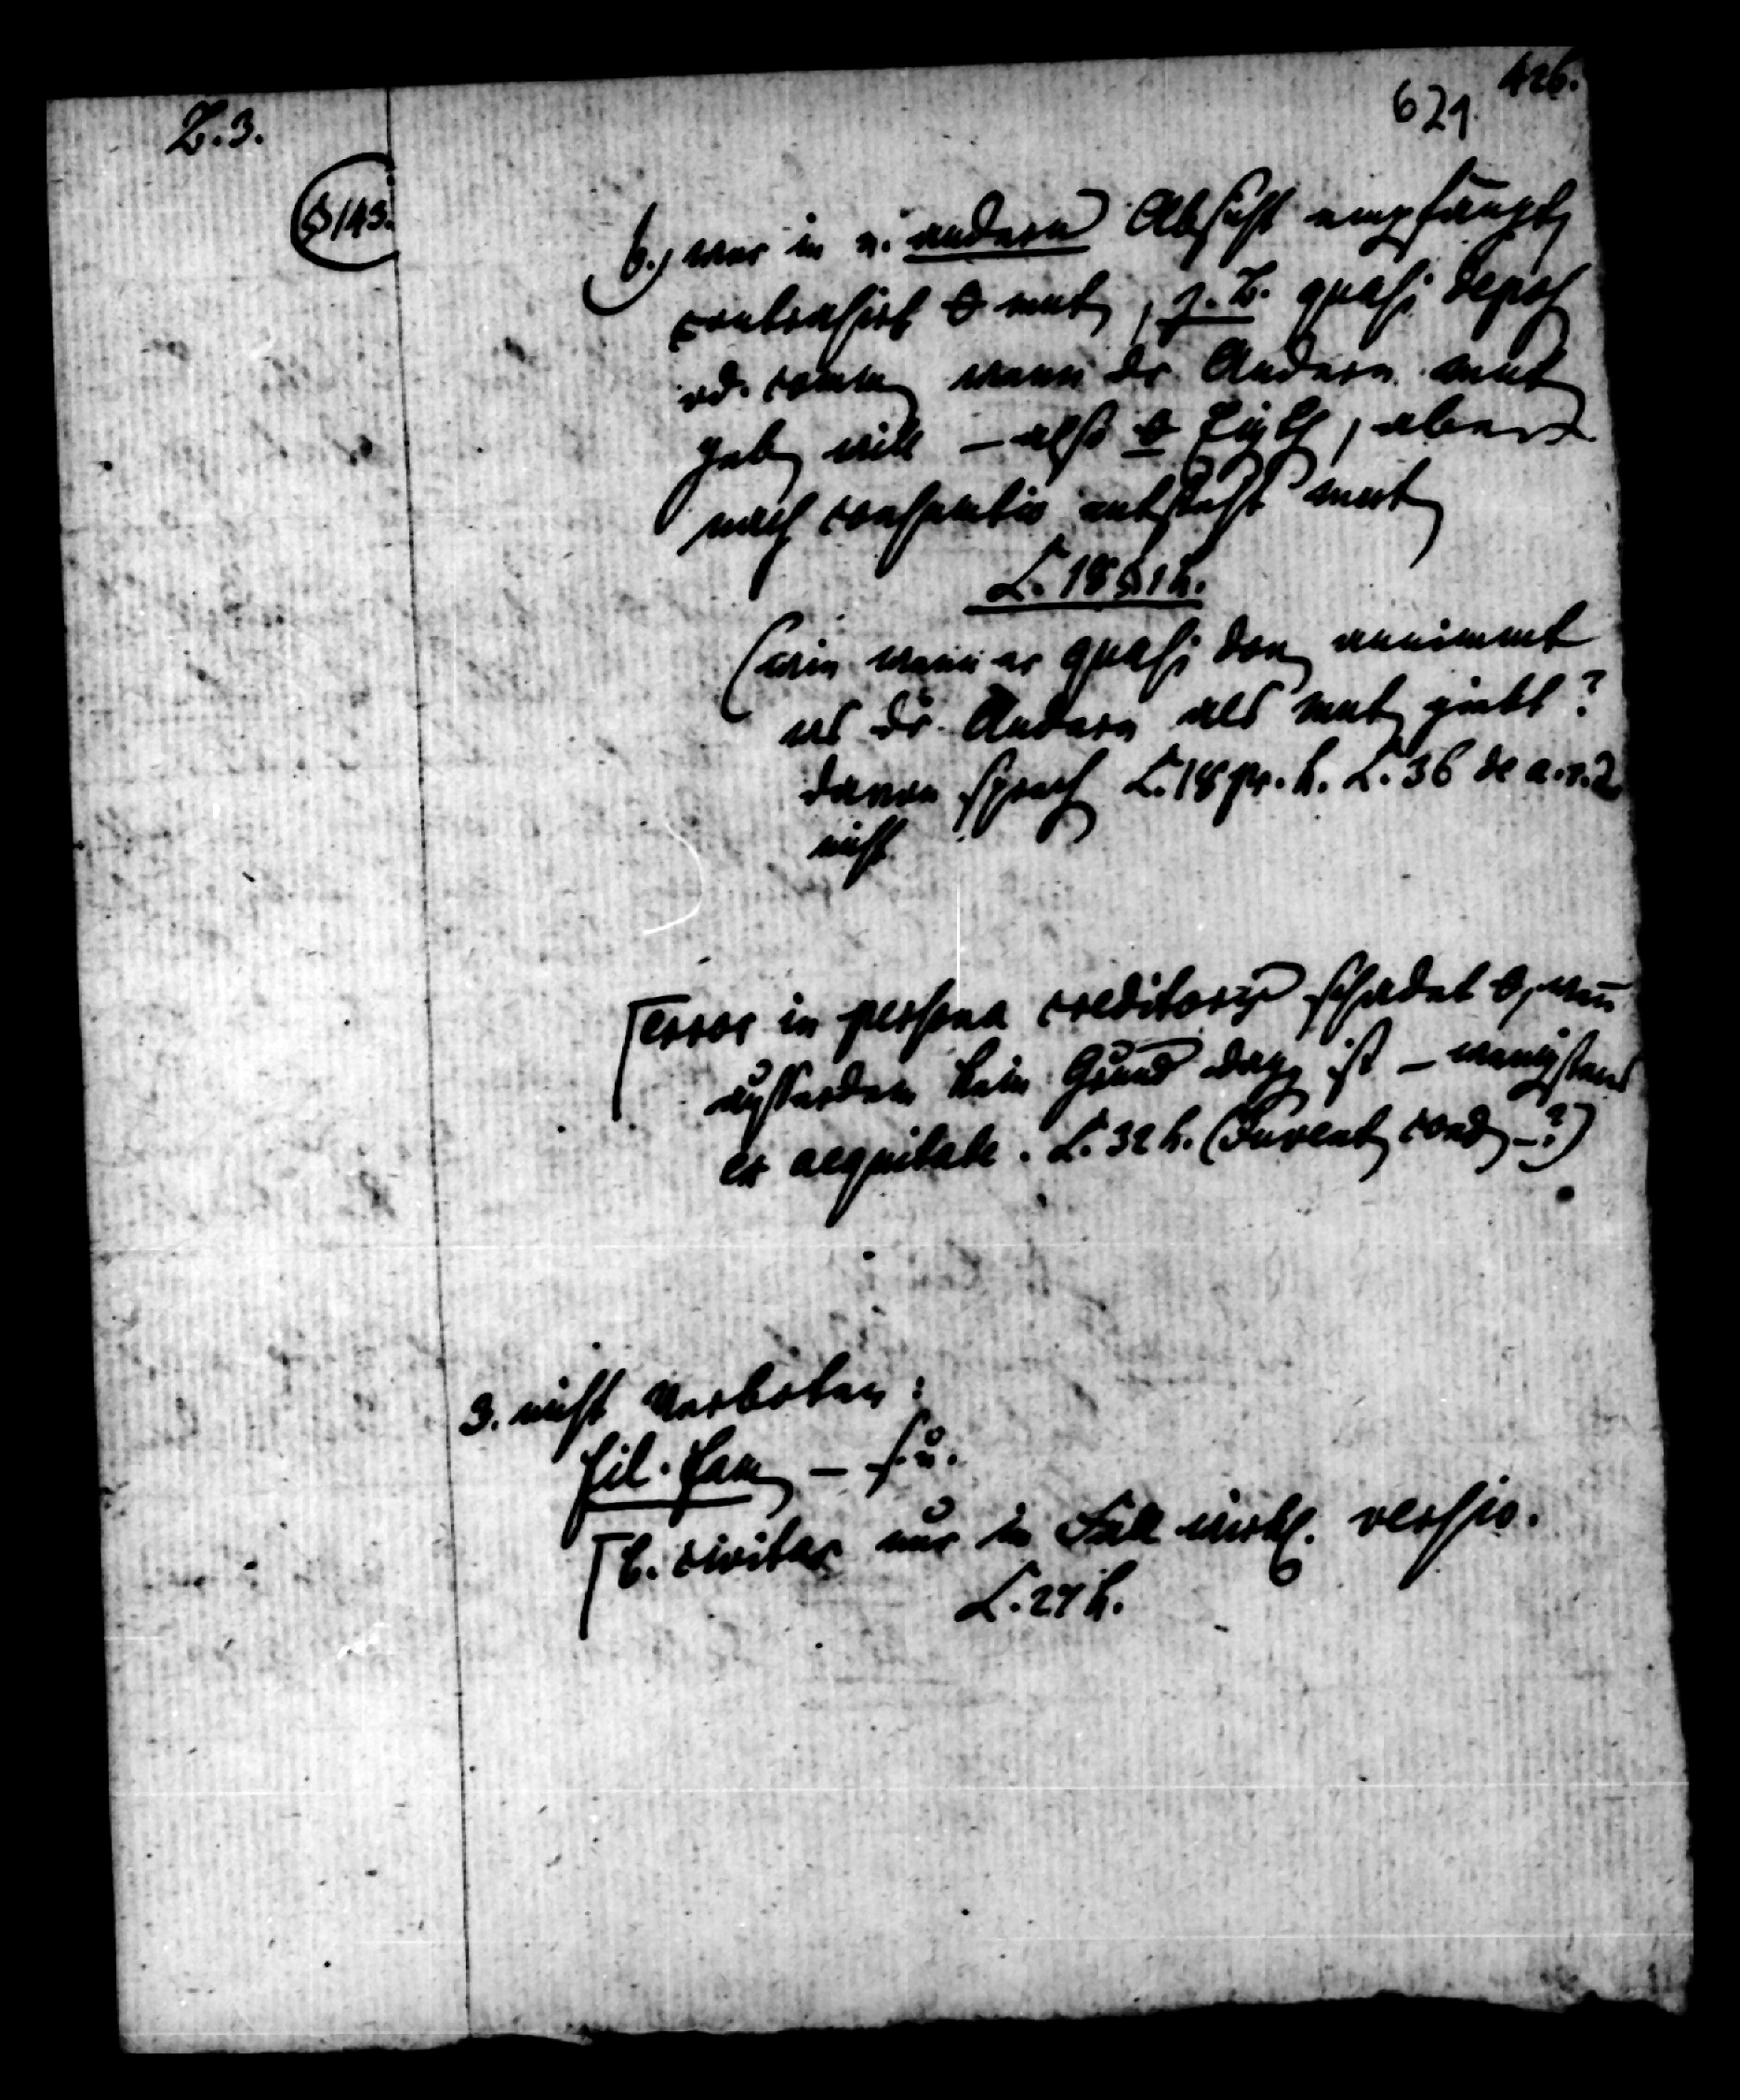 Z. 3.
426.
621.
§ 143.
b.) wer in e. andern Absicht empfängt,
contrahirt 0 mut, z. B. quasi depos
od. comm wenn dr. Andere mut
geb will – also 0 Eigth, aber
nach consumtio entsteht mut
L. 18 §. 1 h.
(wie wenn er quasi don annimmt
was dr. Andere als mut giebt?
davon sprech L. 18 pr. h. L. 36 de a. r. d.
nicht
error in persona creditoris schadet 0, wenn
ausserdem kein Grund dazu ist – wenigstens
ex aequitate. L. 32 h. (Juvent cond –?)
3. nicht verboten:
fil. fam – s. u.
b. civitas nur im Fall wirkl. versio.
L. 27 h.